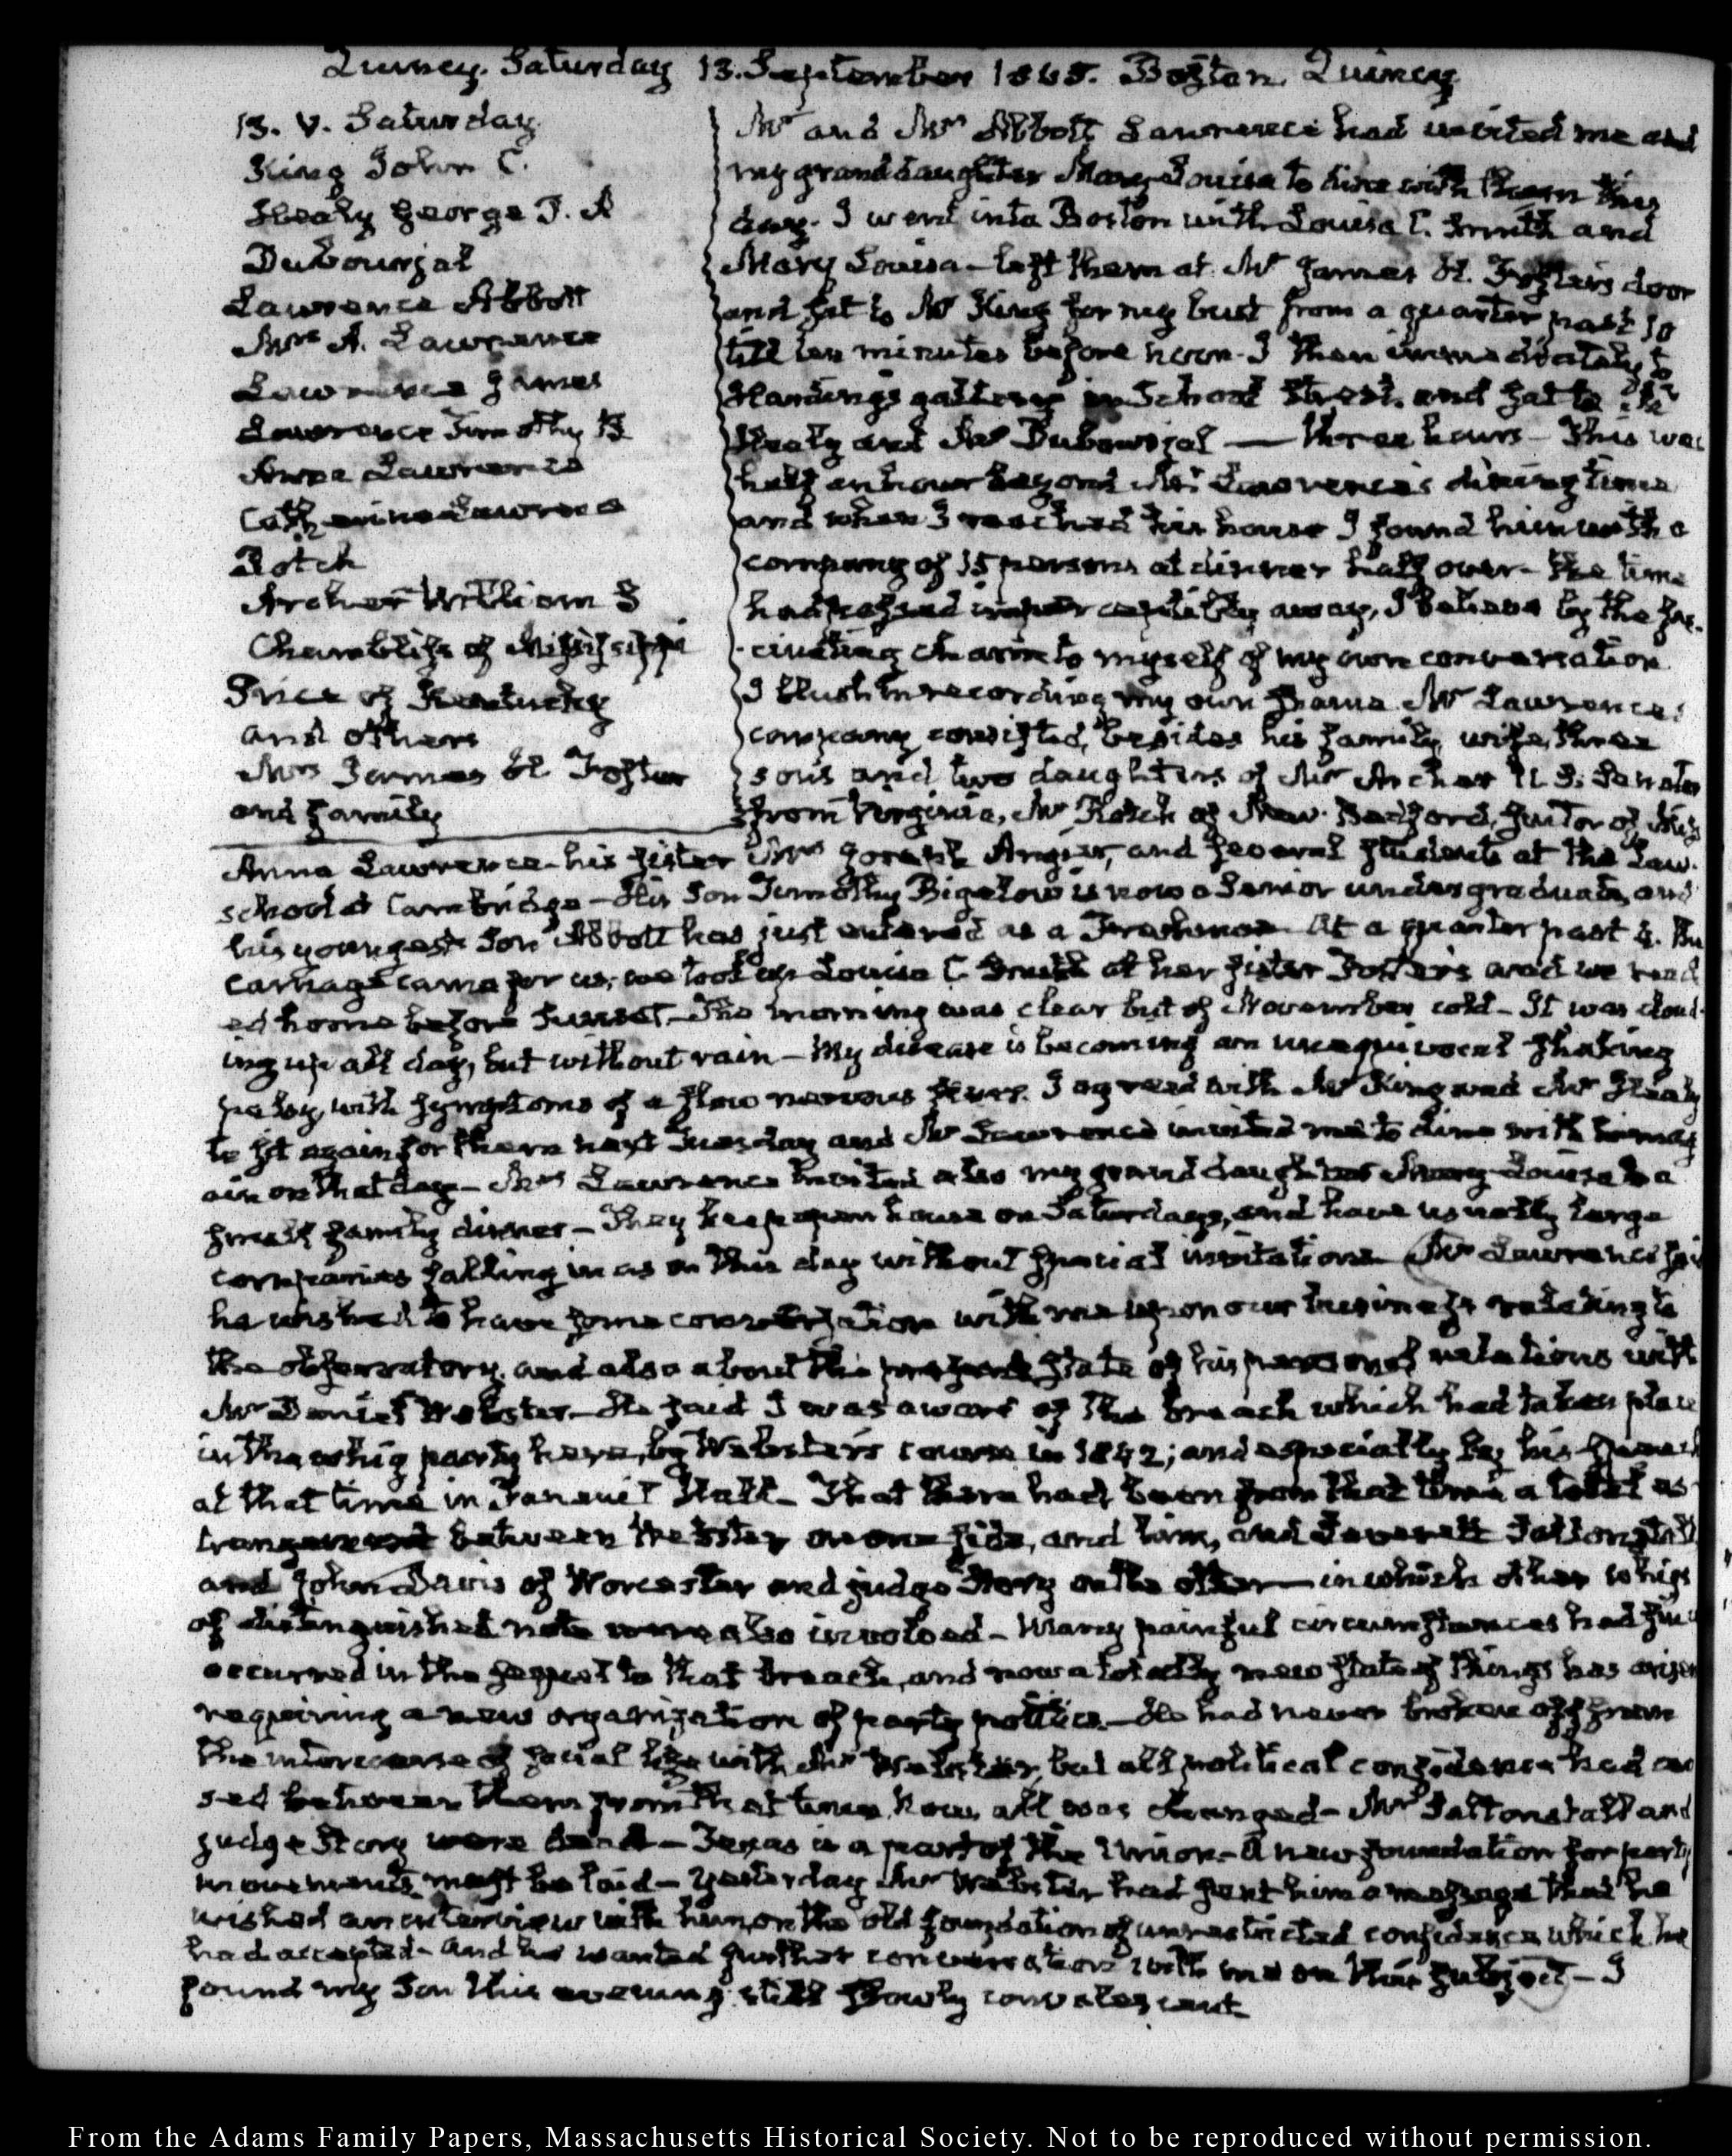 Quincy. Saturday 13. September 1845. Boston. Quincy
13. V. Saturday
King John C.
Healy George P. A
Dubourjal
Lawrence Abbott
Mrs. A. Lawrence
Lawrence James
Lawrence Timothy B
Anna Lawrence
Catherine Lawrence
Rotch
Archer William S
Chambliss of Mississippi
Price of Kentucky
and others
Mrs James H. Foster
and family
Mr and Mrs Abbott Lawrence had invited me and
my granddaughter Mary Louisa to dine with them this
day. I went into Boston with Louisa C. Smith and
Mary Louisa - left them at Mr James H. Foster's door
and sat to Mr King for my bust from a quarter past 10
till ten minutes before noon. I then immediately to
Harding's gallery in School Street, and sat to Mr
Healy and Mr Dubourjal — three hours - This was
half an hour beyond Mr Lawrence's dining time
and when I reached his house I found him with a
company of 15 persons at dinner half over - the time
had passed imperceptibly away, I believe by the fas-
cinating charm to myself of my own conversation
I blush in recording my own shame. Mr Lawrence's
company consisted, besides his family, wife, three
sons and two daughters of Mr Archer U.S. Senator
from Virginia, Mr Rotch of New-Bedford, suitor of Miss
Anna Lawrence - his sister Mrs Joseph Angier, and several students at the Law-
school at Cambridge - His son Timothy Bigelow is now a Senior undergraduate, and
his youngest son Abbott has just entered as a Freshman. At a quarter past 4. the
carriage came for us; we took up Louisa C. Smith at her sister Foster's and we reach
ed home before Sunset. The morning was clear but of November cold - It was cloud-
ing up all day, but without rain - My disease is becoming an unequivocal shaking
palsy with symptoms of a slow nervous fever. I agreed with Mr King and Mr Healy
to sit again for them next Tuesday and Mr Lawrence invited me to dine with him ag
ain on that day - Mrs Lawrence invited also my granddaughter Mary-Louisa to a
small family dinner - They keep open house on Saturdays, and have usually large
companies falling in as on this day without special invitation. Mr Lawrence said
he wished to have some conversation with me upon our business relating to
the observatory, and also about the present state of his personal relations with
Mr Daniel Webster - He said I was aware of the breach which had taken place
in the whig party here, by Webster's course in 1842; and especially by his speech
at that time in Faneuil Hall - That there had been from that time a total es-
trangement between Webster on one side, and him, and Leverett Saltonstall
and John Davis of Worcester and judge Story on the other - in which other whigs
of distinguished note were also involved - Many painful circumstances had since
occurred in the sequel to that breach, and now a totally new state of things has arisen
requiring a new organization of party politics. - He had never broken off from
the intercourse of social life with Mr Webster, but all political confidence had cea
sed between them from that time. Now, all was changed - Mr Saltonstall and
judge Story were dead - Texas is a part of the Union - A new foundation for party
movements must be laid - Yesterday Mr Webster had sent him a message that he
wished an interview with him, on the old foundation of unrestricted confidence, which he
had accepted - and he wanted further conversation with me on this subject - I
found my Son this evening still slowly convalescent
From the Adams Family Papers, Massachusetts Historical Society. Not to be reproduced without permission.